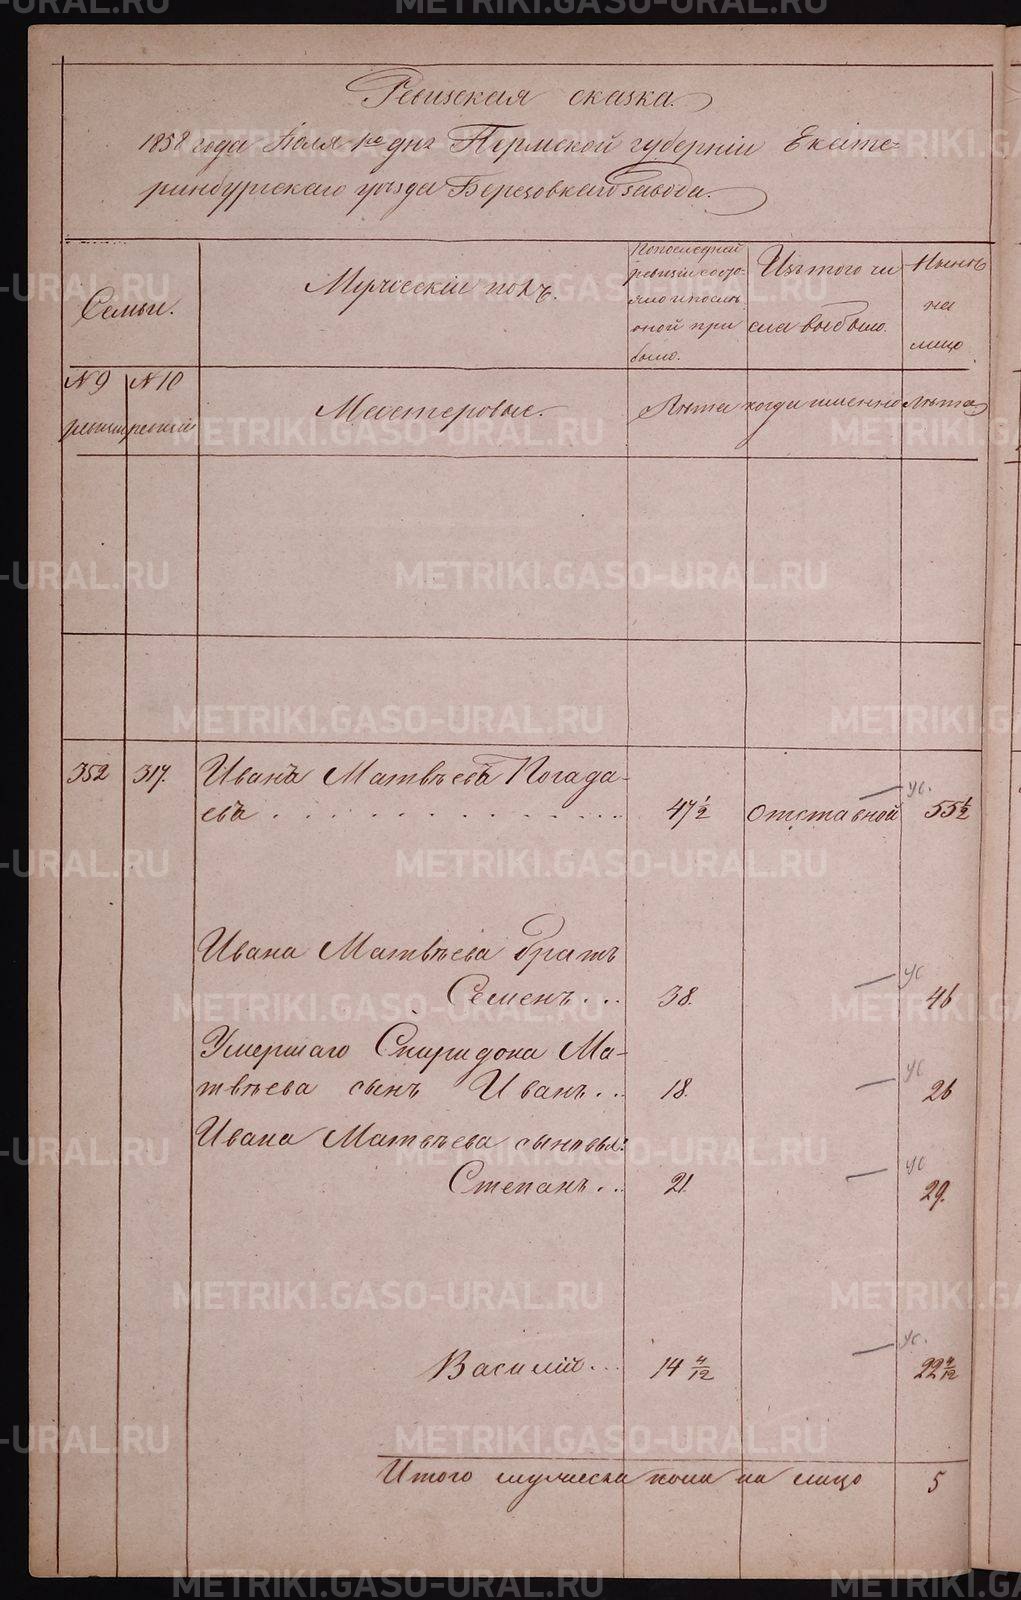 Ревизская сказка.
1858 года Июля 1го дня Пермской губернiи Екате-
ринбургскаго уѣзда Березовскаго завода.
Семьи.
Мужескiй полъ.
По последней
ревизiи состо-
яло и послѣ
оной при
было.
Изъ того чи
сла выбыло.
Нынѣ
на
лицо
№ 9
ревизiи
№ 10
ревизiи
Мастеровые.
Лѣта
когда именно
Лѣта
352 317. Иванъ Матвѣевъ Погада-
евъ 47 1/2 Отставной ус. 55 1/2
Ивана Матвѣева братъ
Семенъ... 38. ус 46
Умершаго Спиридона Ма-
твѣева сынъ Иванъ... 18. ус 26
Ивана Матвѣева сыновья:
Степанъ... 21. ус 29.
Василiй... 14 4/12 ус. 22 4/12
Итого мужеска пола на лицо 5
METRIKI.GASO-URAL.RU